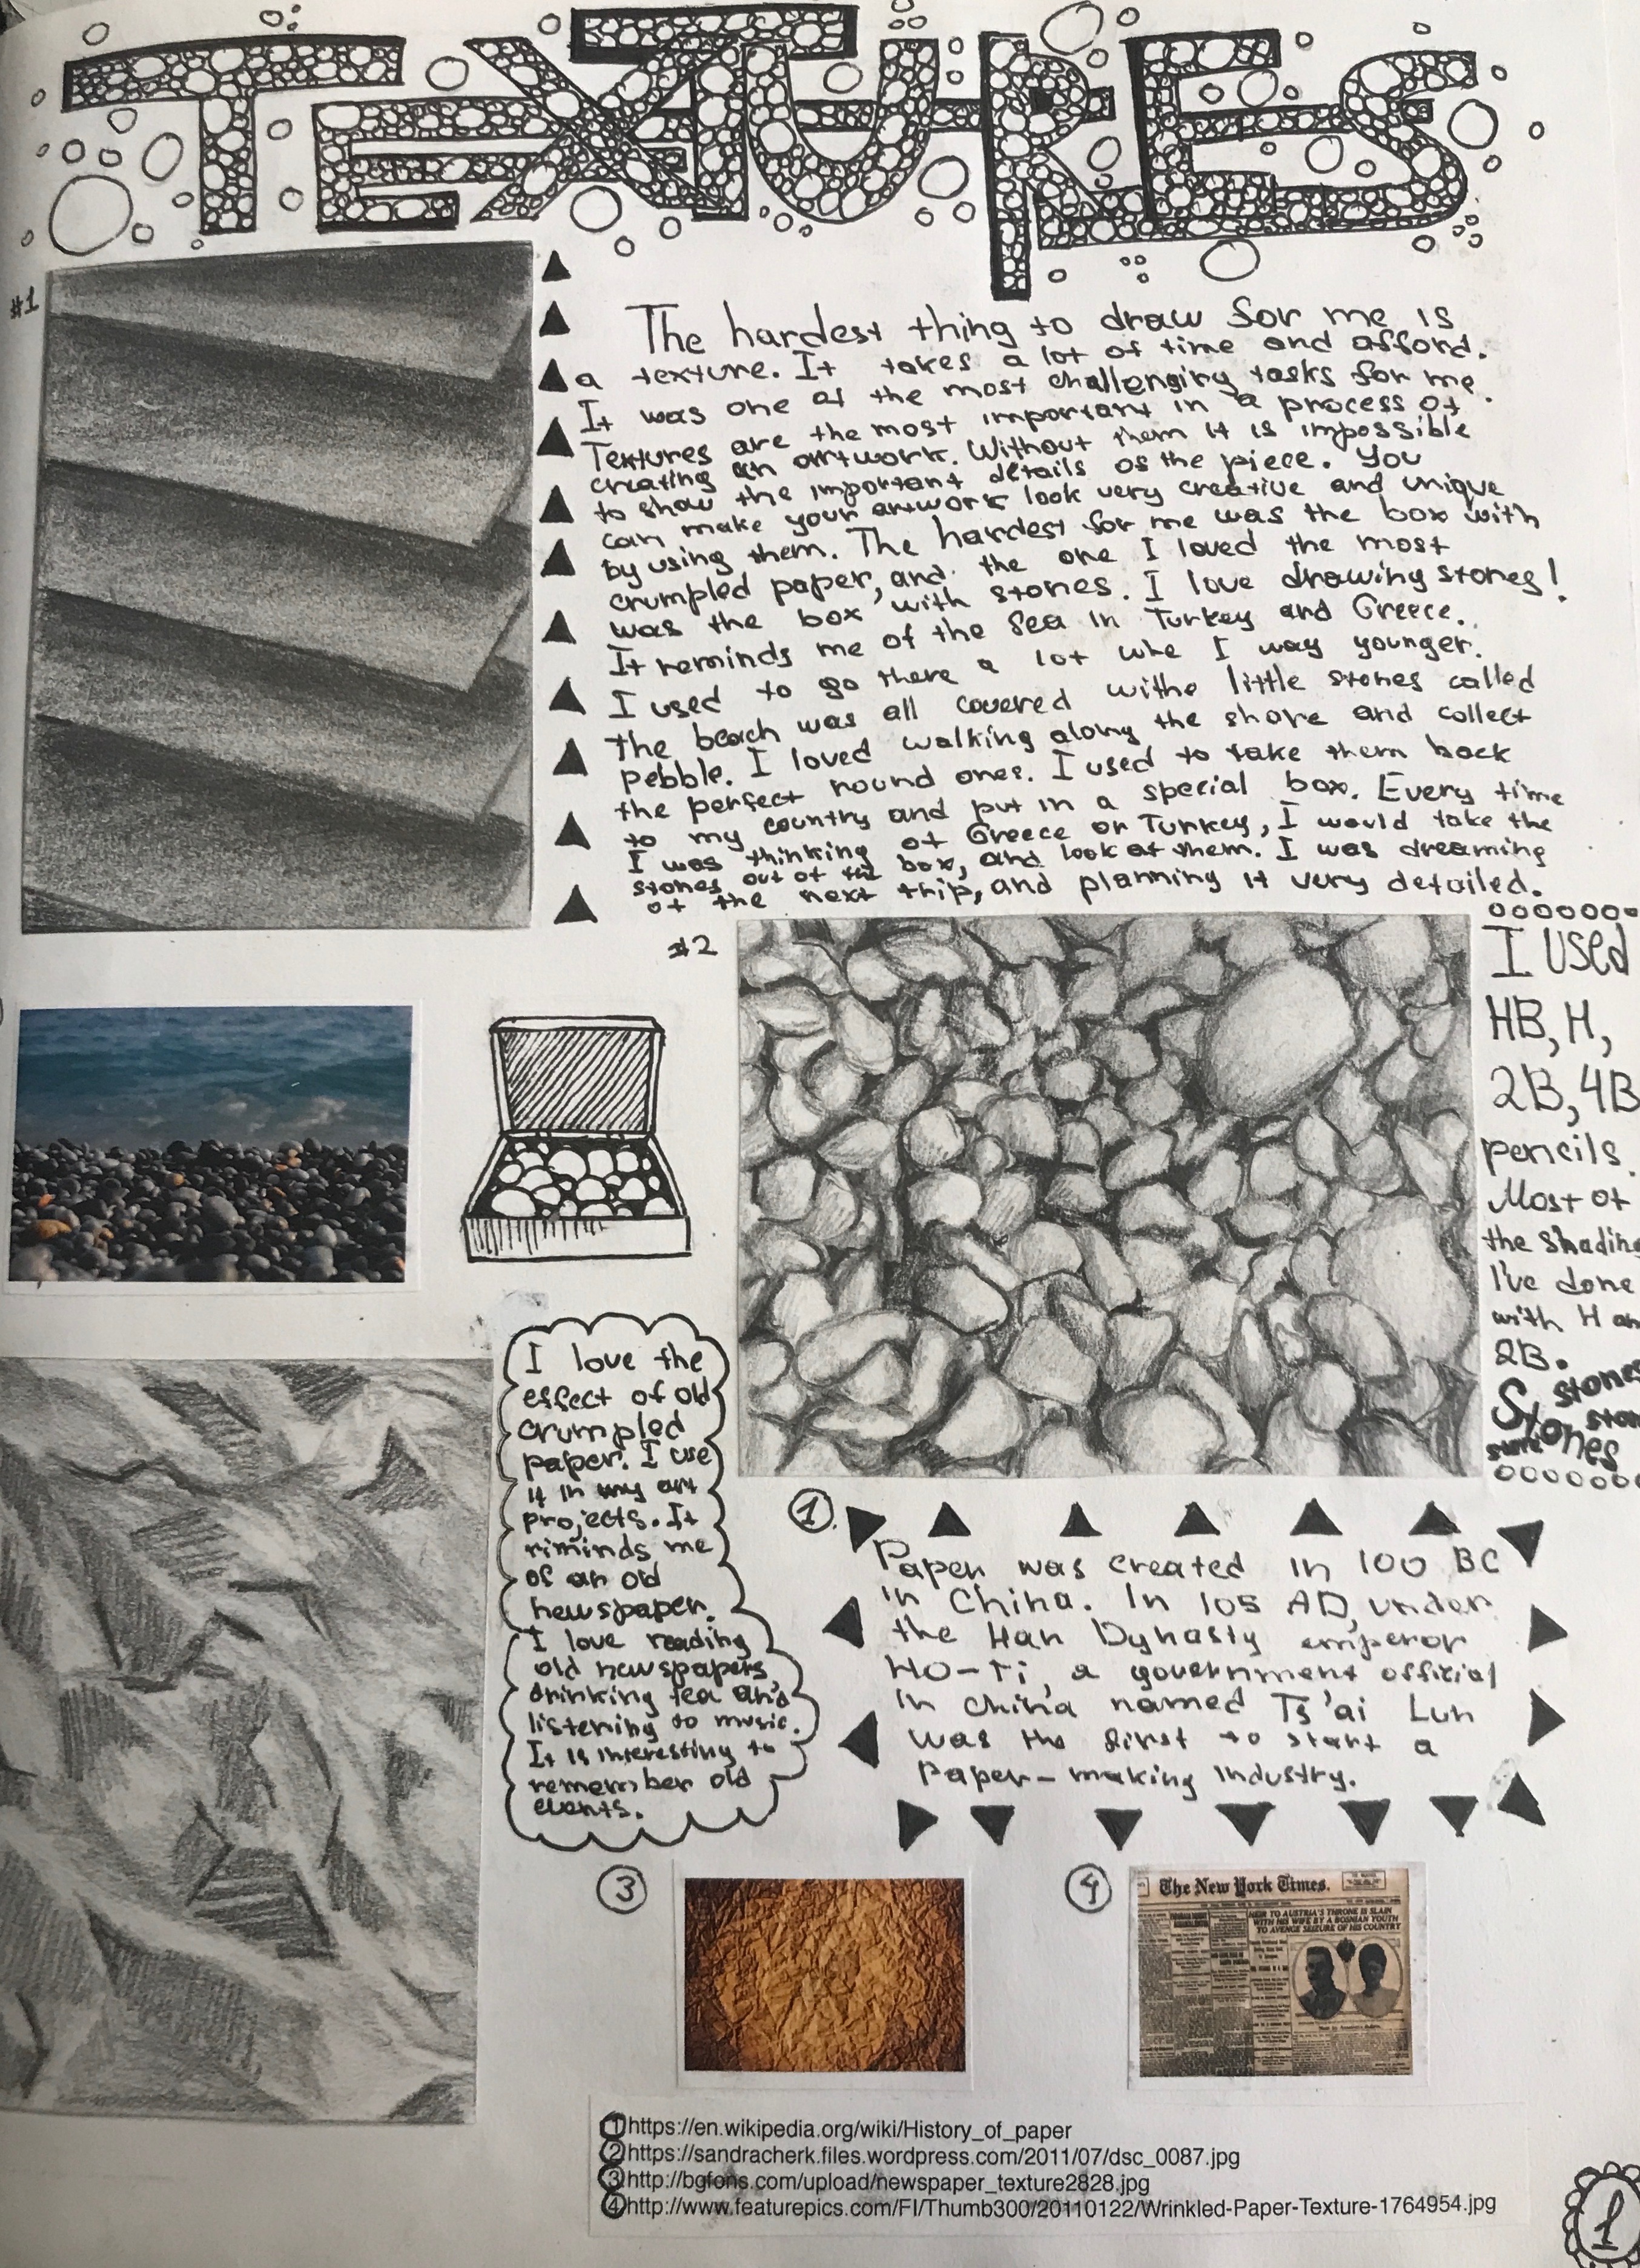 TEXTURES
#1
The hardest thing to draw for me is
a texture. It takes a lot of time and afford.
It was one of the most challenging tasks for me.
Textures are the most important in a process of
creating an artwork. Without them it is impossible
to show the important details of the piece. You
can make your artwork look very creative and unique
by using them. The hardest for me was the box with
crumpled paper, and the one I loved the most
was the box with stones. I love drawing stones!
It reminds me of the Sea in Turkey and Greece.
I used to go there a lot whe I way younger.
The beach was all covered withe little stones called
pebble. I loved walking along the shore and collect
the perfect round ones. I used to take them back
to my country and put in a special box. Every time
I was thinking of Greece or Turkey, I would take the
stones out of the box, and look at them. I was dreaming
of the next thip, and planning it very detailed.
#2
I used
HB, H,
2B, 4B
pencils.
Most of
the shading
I've done
with H an
2B.
stones
Stones
I love the
effect of old
crumpled
paper. I use
it in my art
projects. It
riminds me
of an old
newspaper.
I love reading
old newspapers
drinking tea and
listening to music.
It is interesting to
remember old
events.
1.
Paper was created in 100 BC
in China. In 105 AD, under
the Han Dynasty emperor
HO-Ti, a government official
in China named Ts'ai Lun
was the first to start a
Paper-making industry.
3
4
The New York Times.
HEIR TO AUSTRIA'S THRONE IS SLAIN
WITH HIS WIFE BY A BOSNIAN YOUTH
TO AVENGE SEIZURE OF HIS COUNTRY
1 https://en.wikipedia.org/wiki/History_of_paper
2 https://sandracherk.files.wordpress.com/2011/07/dsc_0087.jpg
3 http://bgfons.com/upload/newspaper_texture2828.jpg
4 http://www.featurepics.com/FI/Thumb300/20110122/Wrinkled-Paper-Texture-1764954.jpg
1